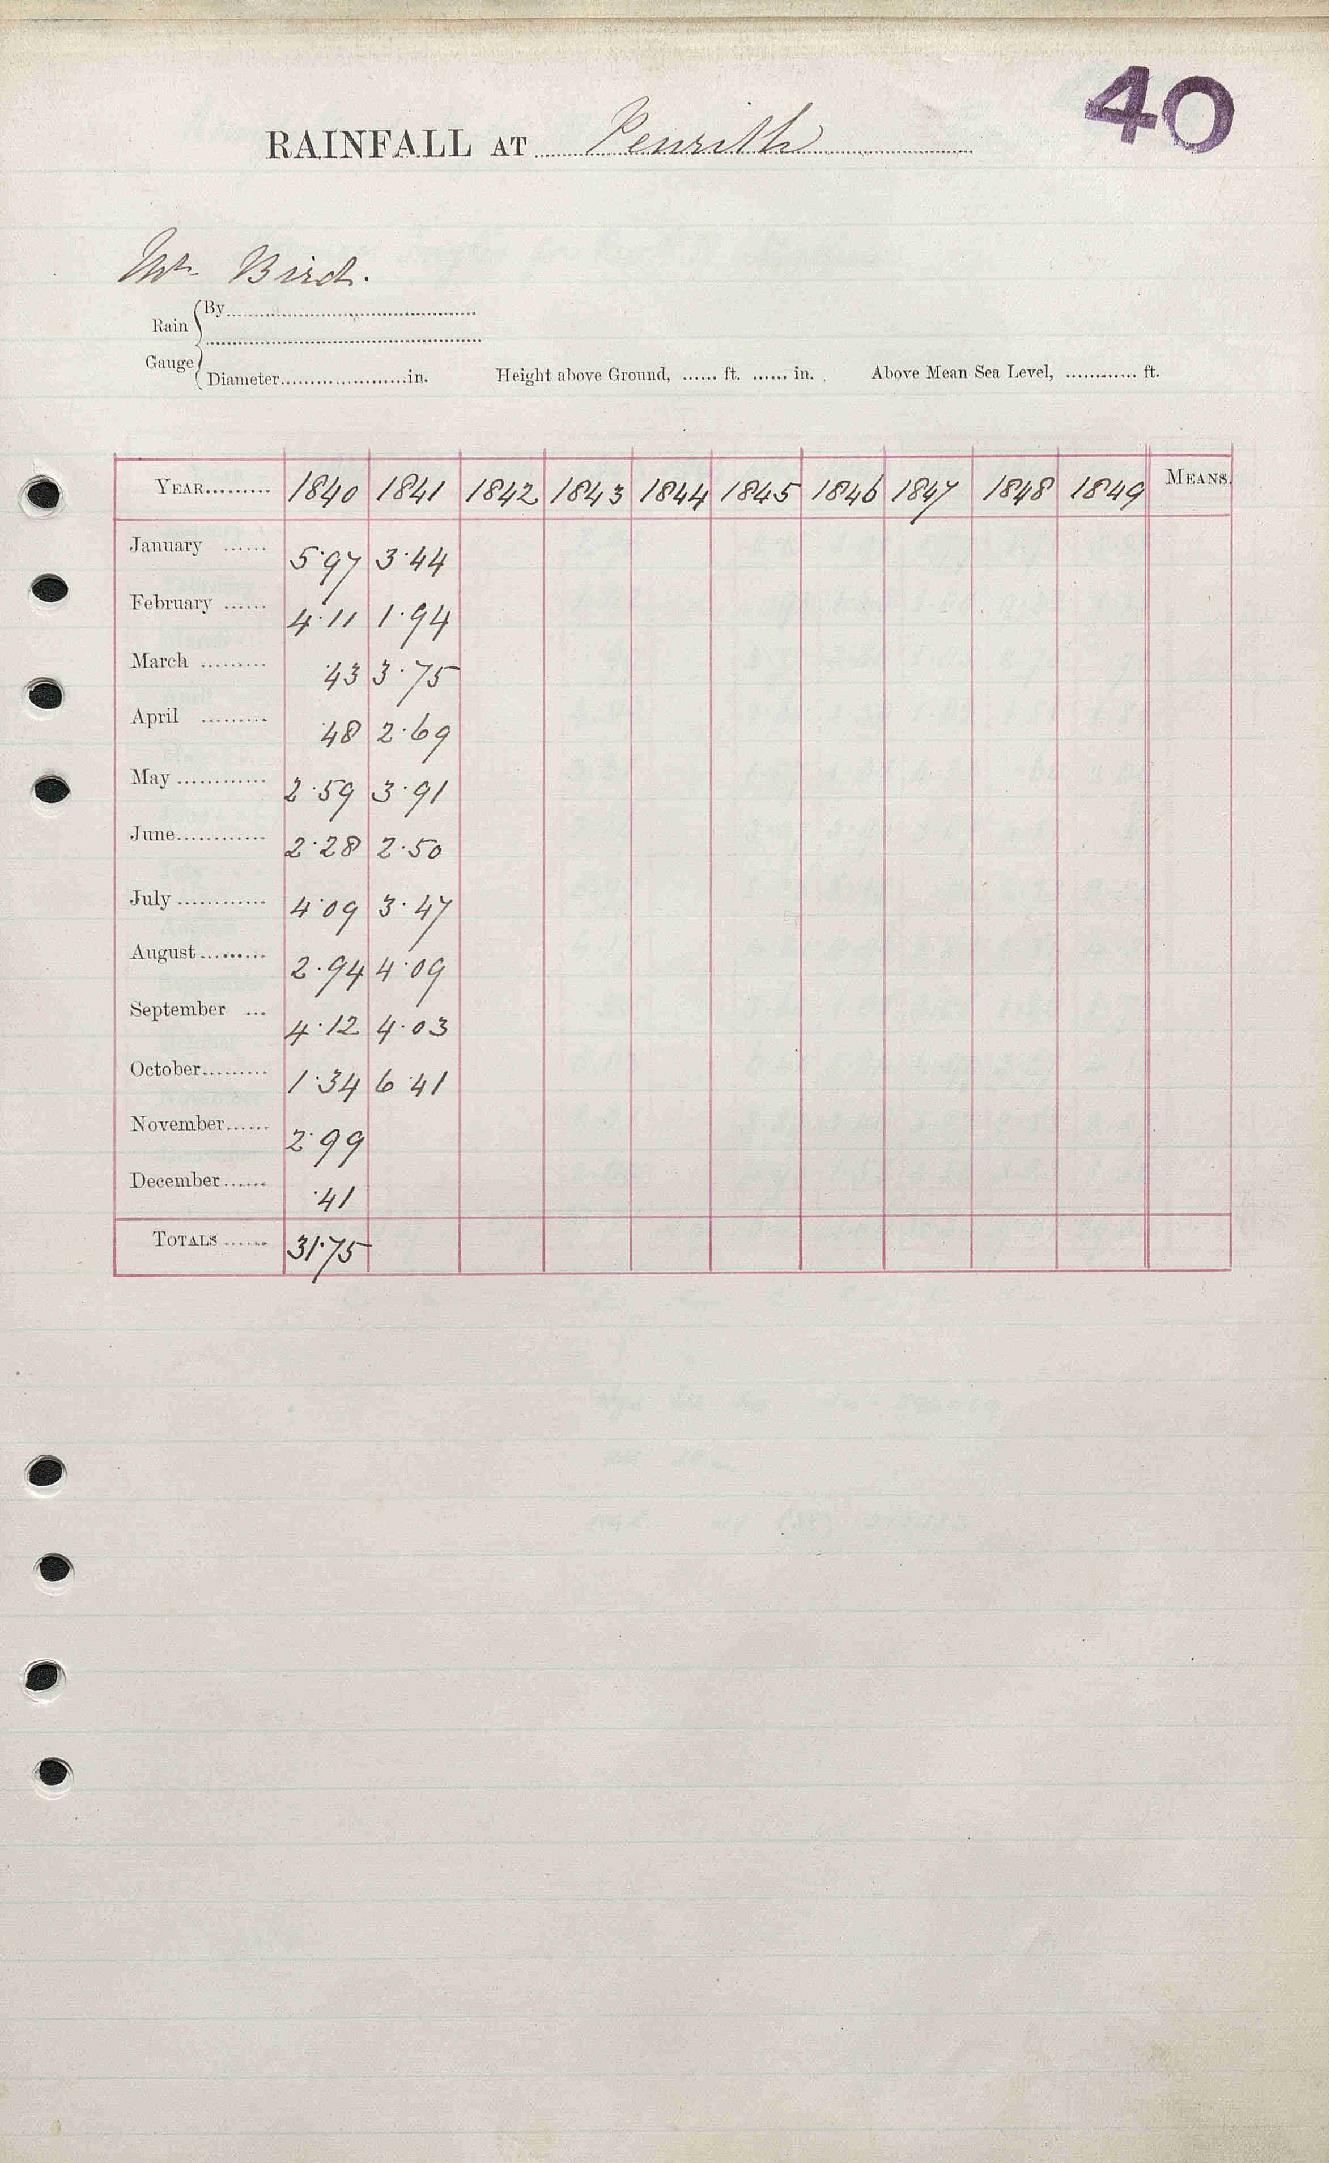 40
RAINFALL AT Penrith
Mr Bird.
Rain Gauge
By
Diameter in. Height above Ground, ft. in. Above Mean Sea Level, ft.
YEAR 1840 1841 1842 1843 1844 1845 1846 1847 1848 1849 MEANS.
January 5·97 3·44
February 4·11 1·94
March ·43 3·75
April ·48 2·69
May 2·59 3·91
June 2·28 2·50
July 4·09 3·47
August 2·94 4·09
September 4·12 4·03
October 1·34 6·41
November 2·99
December ·41
TOTALS 31·75